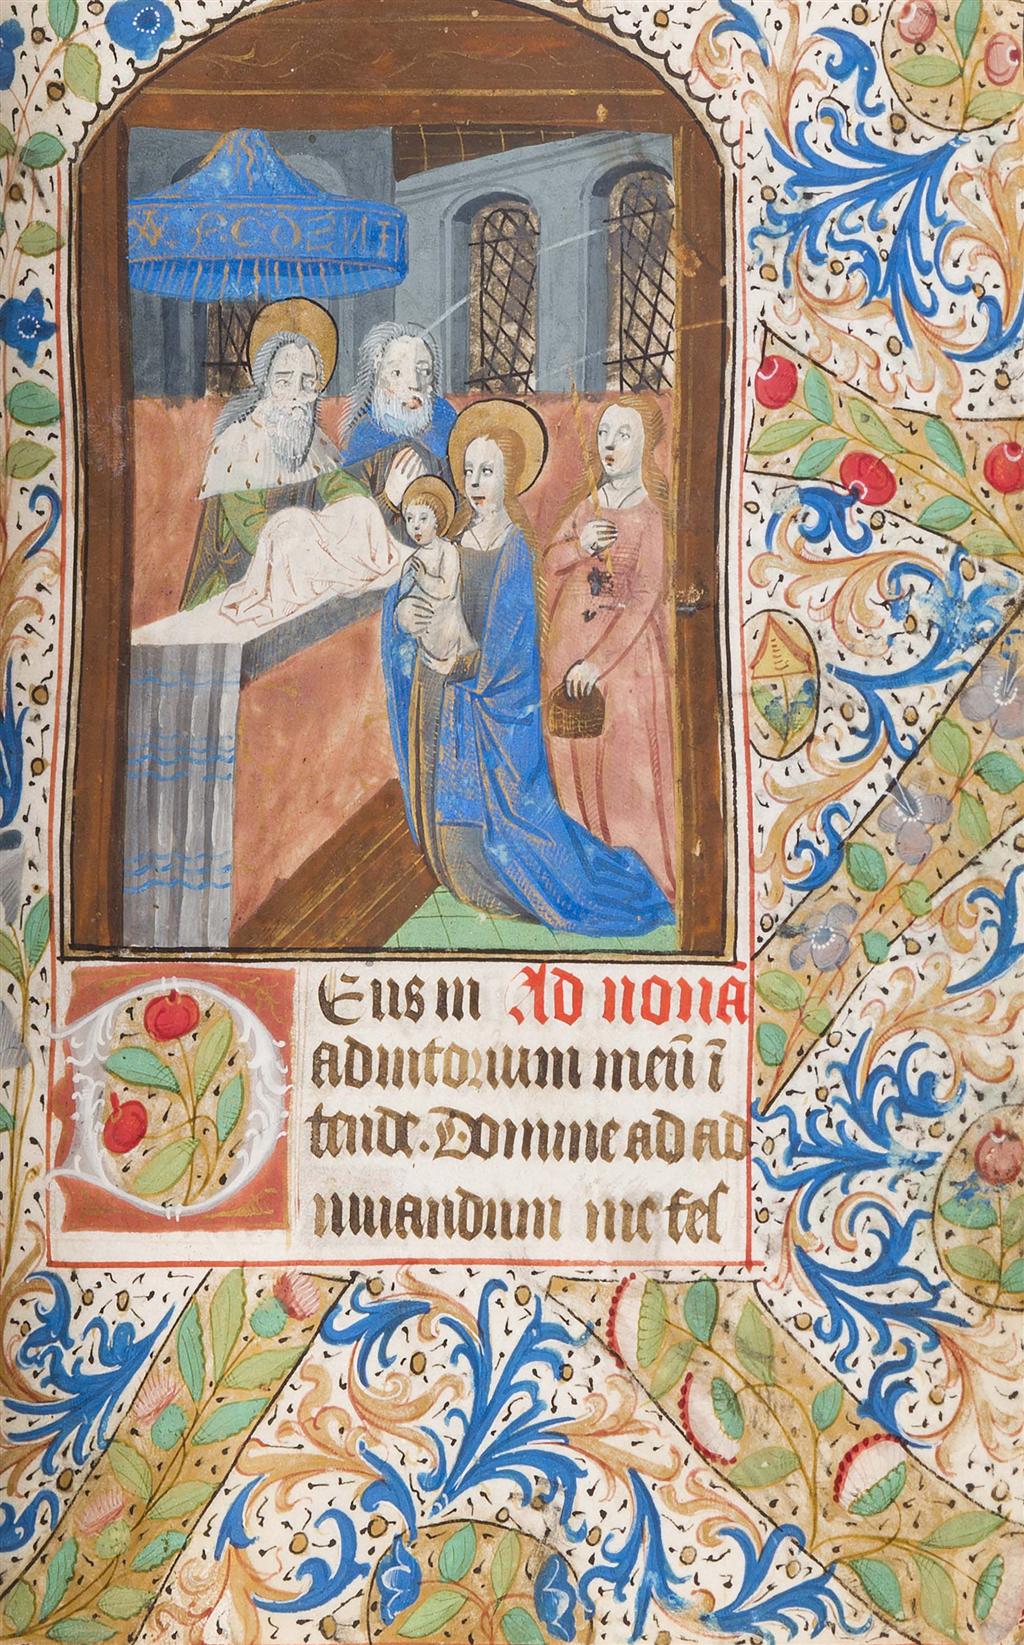 Eus in Ad nonā
adiutorium meū ī
tende. Domine ad ad
iuuandum me fes